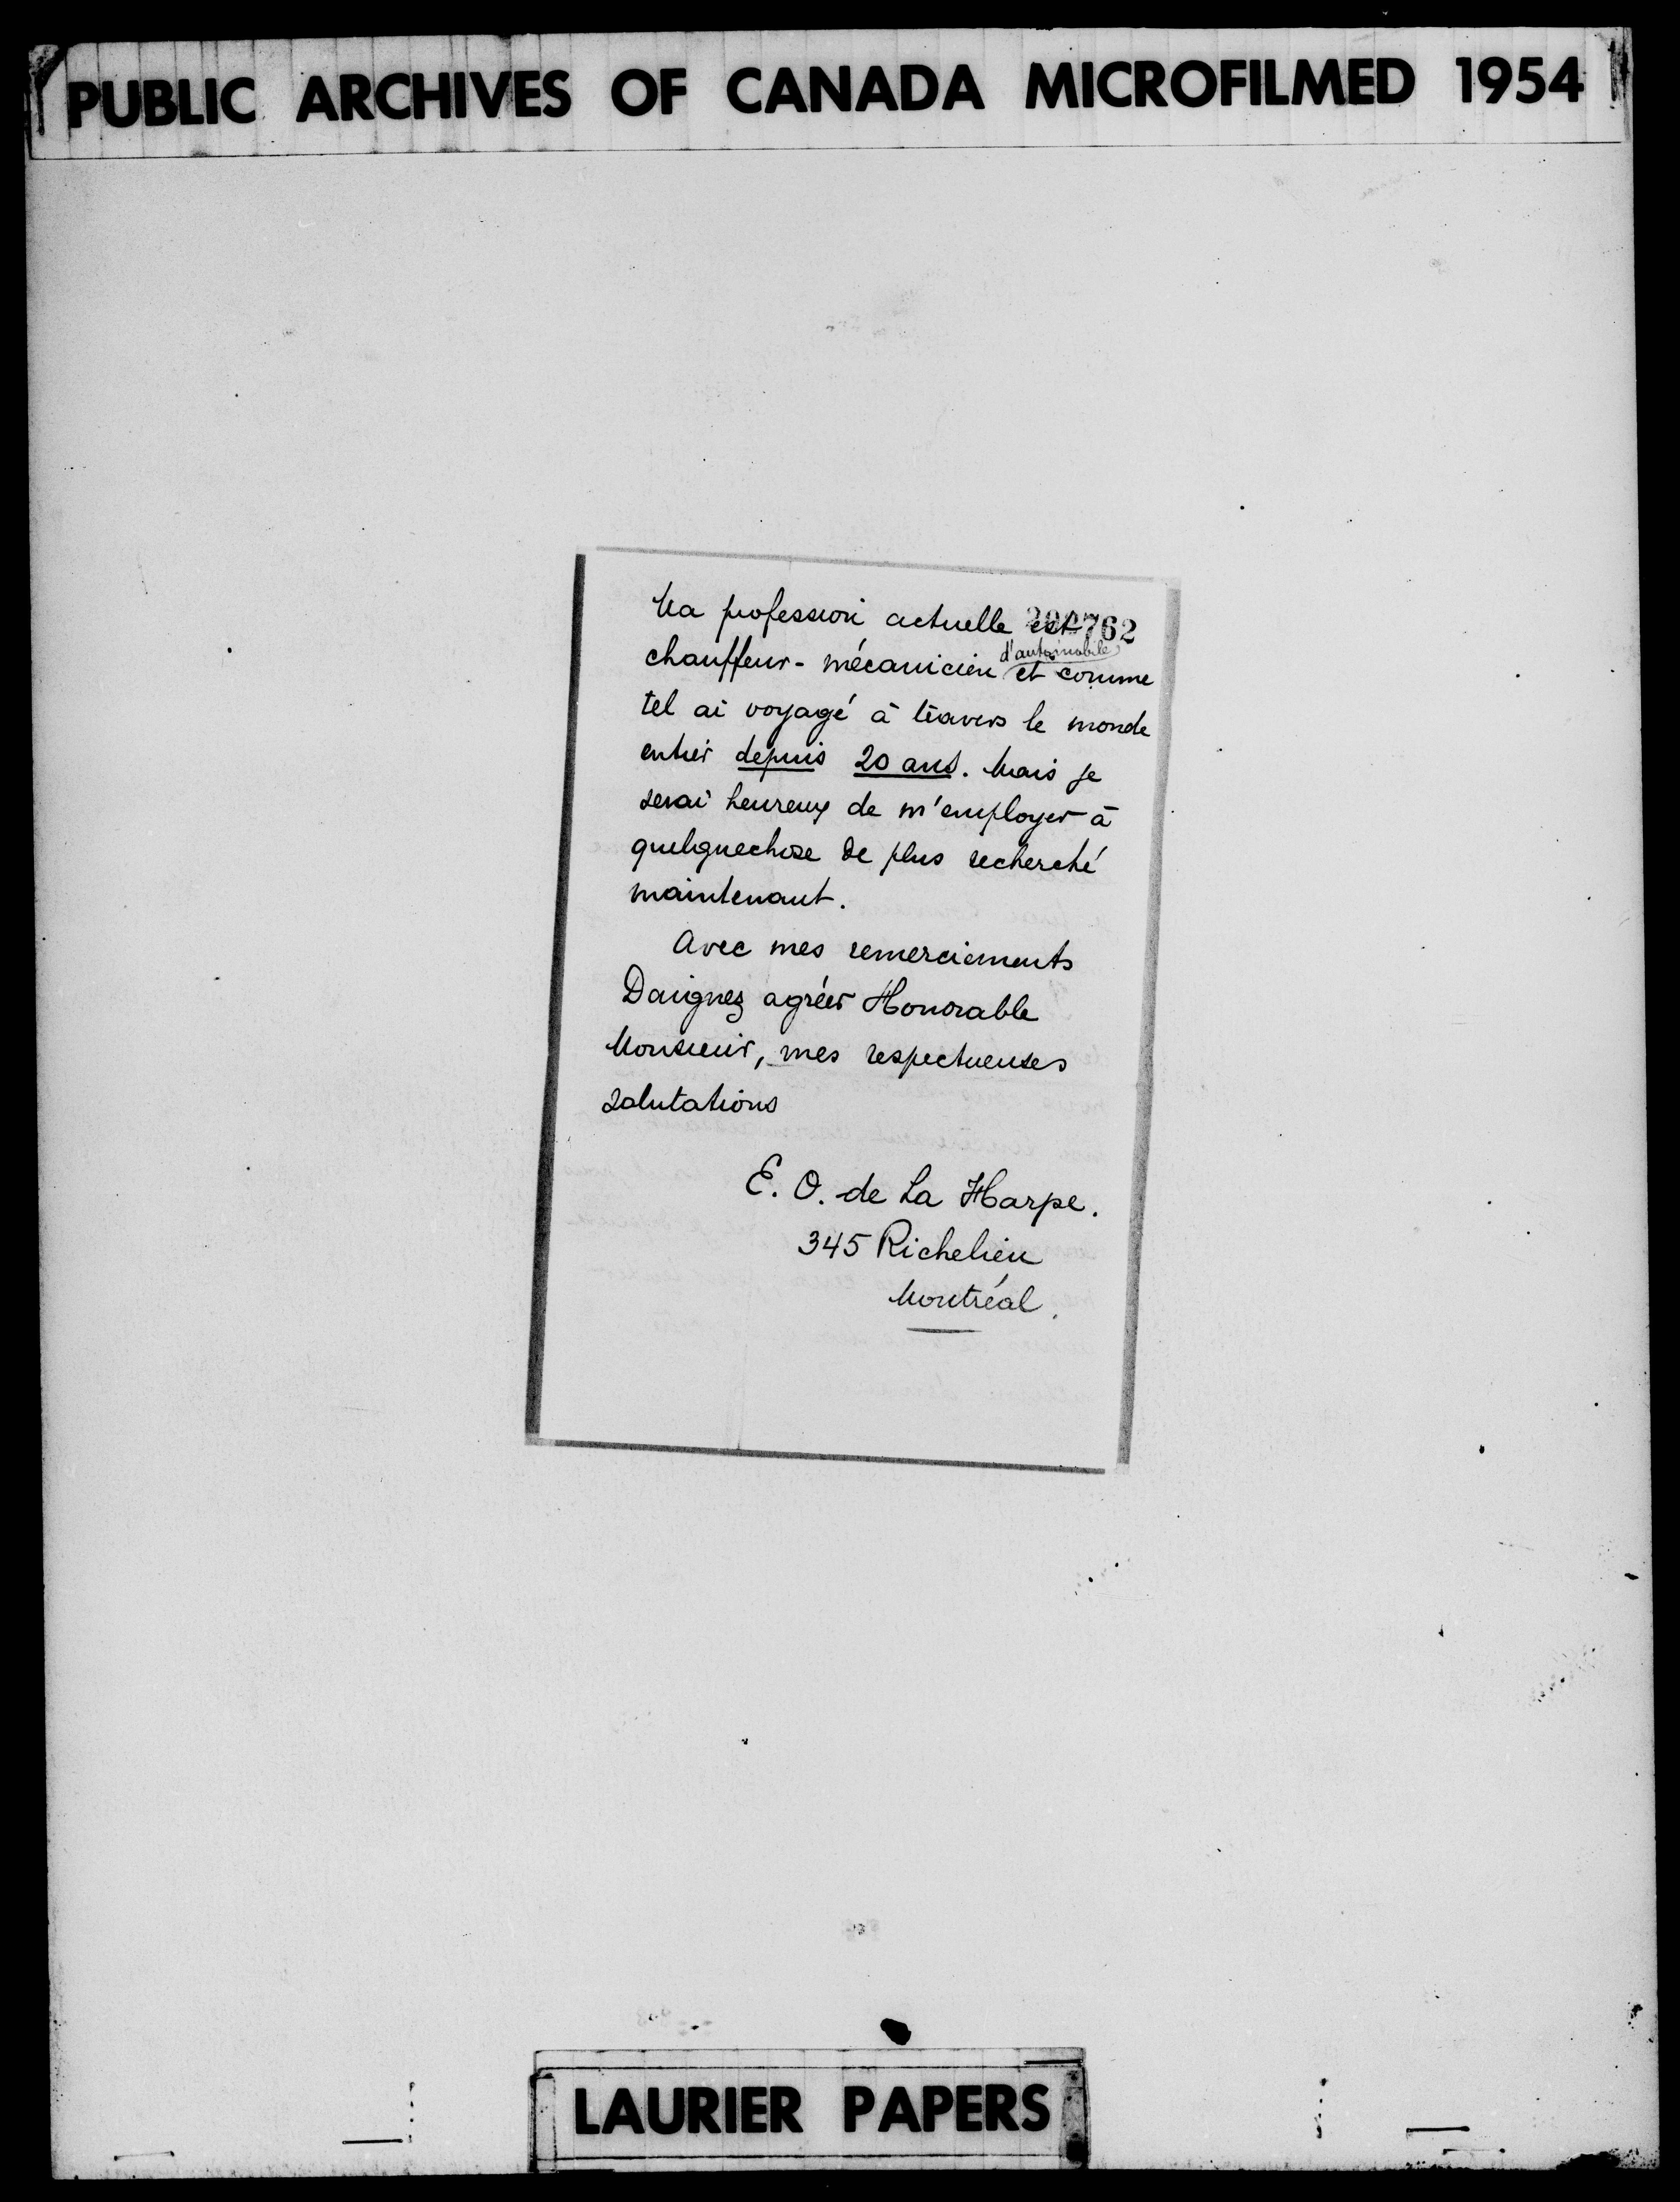 PUBLIC ARCHIVES OF CANADA MICROFILMED 1954
Ma profession actuelle est
d'automobile
chauffeur - mécanicien et comme
tel ai voyagé à travers le monde
entier depuis 20 ans. Mais je
serai heureux de m'employer à
quelquechose de plus recherché
maintenant.
Avec mes remerciements
Daignez agréer Honorable
Monsieur, mes respectueuses
salutations
E. O. de La Harpe.
345 Richelieu
Montréal.
LAURIER PAPERS